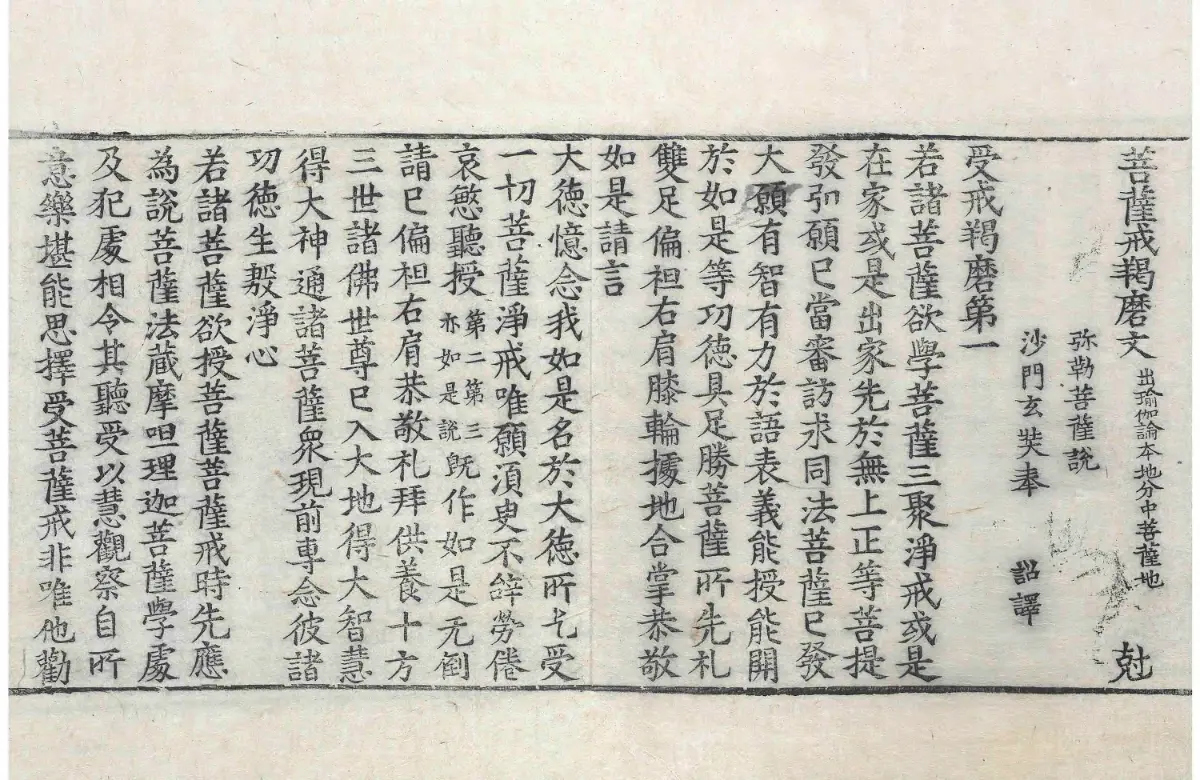 菩薩戒羯磨文 出瑜伽論本地分中菩薩地 尅
弥勒菩薩說
沙門玄奘奉 詔譯
受戒羯磨第一
若諸菩薩欲學菩薩三聚淨戒或是
在家或是出家先於無上正等菩提
發弘願已當審訪求同法菩薩已發
大願有智有力於語表義能授能開
於如是等功德具足勝菩薩所先礼
雙足偏袒右肩膝輪據地合掌恭敬
如是請言
大德憶念我如是名於大德所乞受
一切菩薩淨戒唯願須臾不辞勞倦
哀愍聽授 第二第三亦如是說 既作如是无倒
請已偏袒右肩恭敬礼拜供養十方
三世諸佛世尊已入大地得大智慧
得大神通諸菩薩衆現前專念彼諸
功德生殷淨心
若諸菩薩欲授菩薩菩薩戒時先應
為說菩薩法蔵摩呾理迦菩薩學處
及犯處相令其聽受以慧觀察自所
意樂堪能思擇受菩薩戒非唯他勸